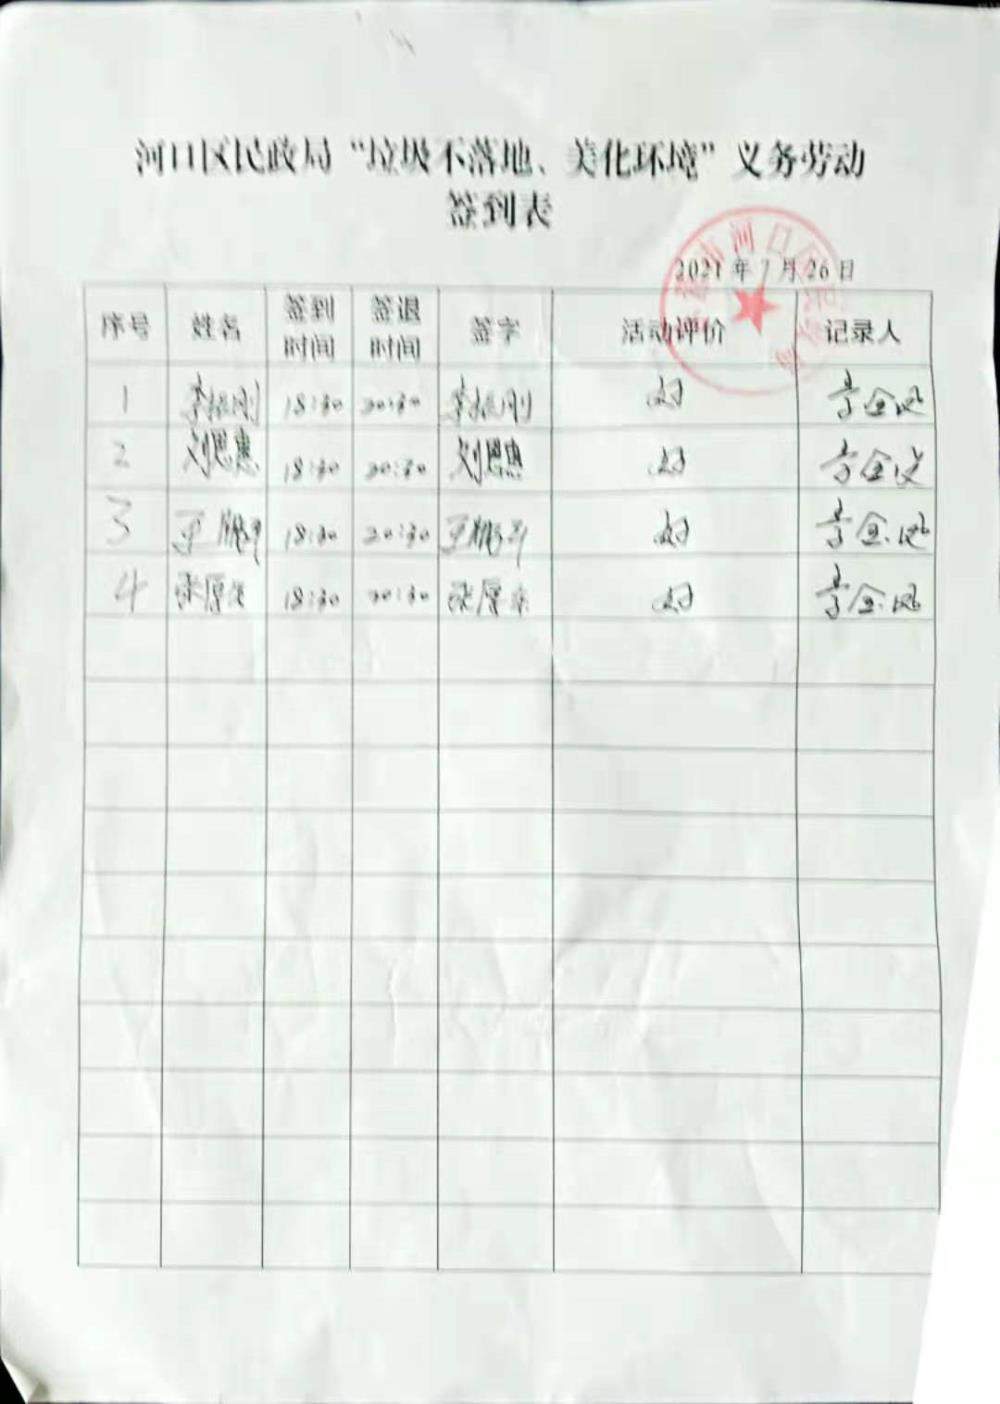 河口区民政局“垃圾不落地、美化环境”义务劳动
签到表
2021年7月26日
序号 姓名 签到时间 签退时间 签字 活动评价 记录人
1 李振刚 18:30 20:30 李振刚 好
2 刘思惠 18:30 20:30 刘思惠 好
3 18:30 20:30 好
4 张厚 18:30 20:30 张厚 好